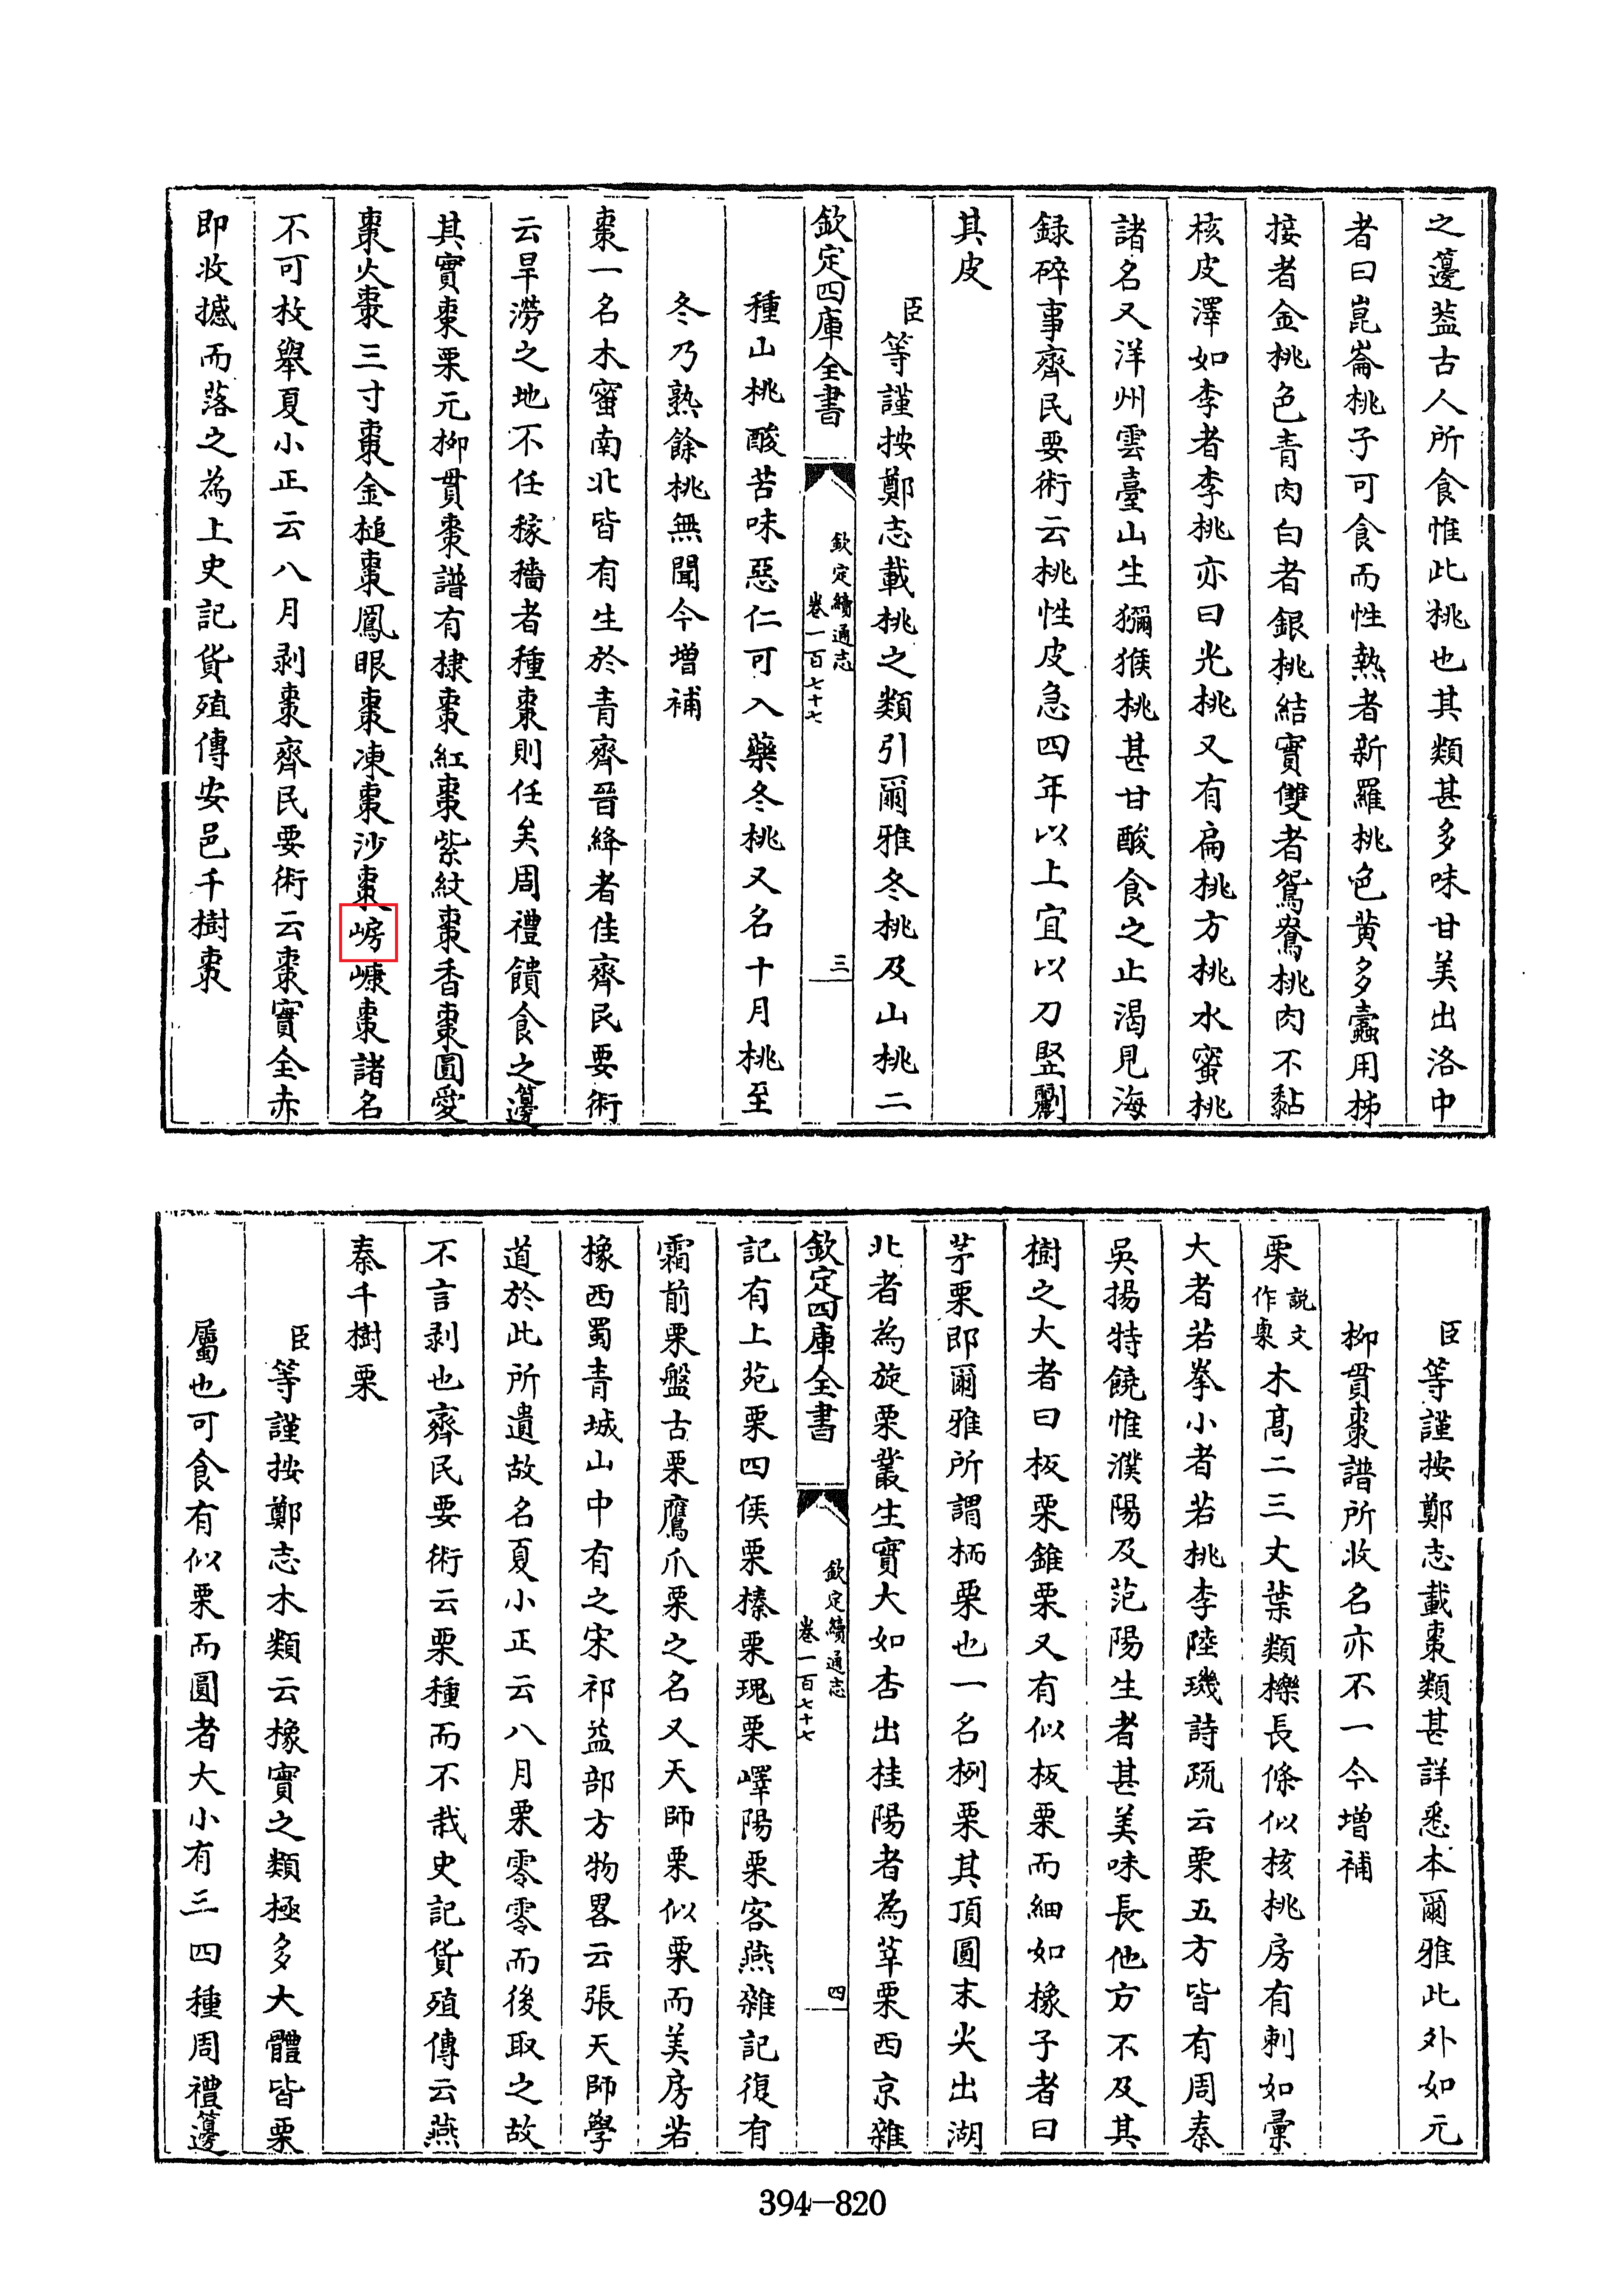 之籩葢古人所食惟此桃也其類甚多味甘美出洛中
者曰崑崙桃子可食而性熱者新羅桃色黄多蠧用柹
接者金桃色青肉白者銀桃結實雙者鴛鴦桃肉不黏
核皮澤如李者李桃亦曰光桃又有扁桃方桃水蜜桃
諸名又洋州雲臺山生獼猴桃甚甘酸食之止渴見海
録碎事齊民要術云桃性皮急四年以上宜以刀竪劙
其皮
臣等謹按鄭志載桃之類引爾雅冬桃及山桃二
欽定四庫全書
欽定續通志
卷一百七十七
三
種山桃酸苦味惡仁可入藥冬桃又名十月桃至
冬乃熟餘桃無聞今増補
棗一名木蜜南北皆有生於青齊晉絳者佳齊民要術
云旱澇之地不任稼穡者種棗則任矣周禮饋食之籩
其實棗栗元柳貫棗譜有棣棗紅棗紫紋棗香棗圓愛
棗火棗三寸棗金槌棗鳳眼棗凍棗沙棗㟁嵻棗諸名
不可枚舉夏小正云八月剥棗齊民要術云棗實全赤
即收撼而落之為上史記貨殖傳安邑千樹棗
臣等謹按鄭志載棗類甚詳悉本爾雅此外如元
柳貫棗譜所收名亦不一今増補
栗說文作㮚木髙二三丈葉類櫟長條似核桃房有刺如彚
大者若拳小者若桃李陸璣詩疏云栗五方皆有周秦
吳揚特饒惟濮陽及范陽生者甚美味長他方不及其
樹之大者曰板栗錐栗又有似板栗而細如橡子者曰
茅栗即爾雅所謂栭栗也一名栵栗其頂圓末尖出湖
北者為旋栗叢生實大如杏出桂陽者為莘栗西京雜
欽定四庫全書
欽定續通志
卷一百七十七
四
記有上苑栗四侯栗榛栗瑰栗嶧陽栗客燕雜記復有
霜前栗盤古栗鷹爪栗之名又天師栗似栗而美房若
橡西蜀青城山中有之宋祁益部方物畧云張天師學
道於此所遺故名夏小正云八月栗零零而後取之故
不言剥也齊民要術云栗種而不栽史記貨殖傳云燕
秦千樹栗
臣等謹按鄭志木類云橡實之類極多大體皆栗
屬也可食有似栗而圓者大小有三四種周禮籩
394-820